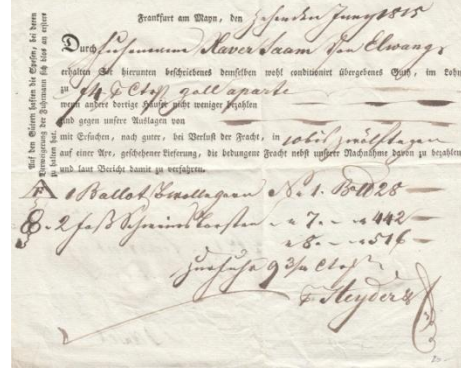 Auf den Gütern haften die Spesen, bei deren
Verweigerung der Fuhrmann sich blos an erstere
zu halten hat.
Frankfurt am Mayn, den Zehenden Juny 1815
Durch Fuhrmann Xaver Saam von Elwangen
erhalten Sie hierunten beschriebenes demselben wohl conditionirt übergebenes Guth, im Lohn
zu
wenn andere dortige Häuser nicht weniger bezahlen
und gegen unsere Auslagen von
mit Ersuchen, nach guter, bei Verlust der Fracht, in 10 bis zwölf Tagen
auf einer Axe, geschehener Lieferung, die bedungene Fracht nebst unserer Nachnahme davon zu bezahlen
und laut Bericht damit zu verfahren.
1 Ballot No 1. 28
2 Faß Schweinsborsten " 7. " 442
" 8. " 516